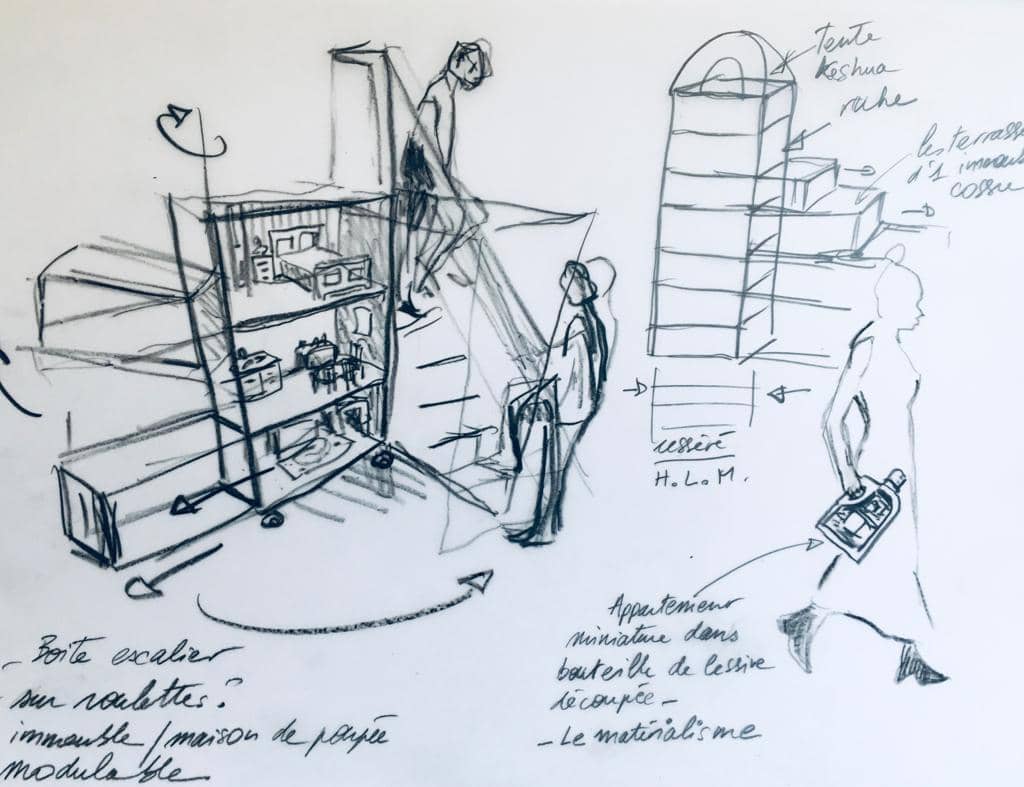 tente
Keshua
ruche
les terrasse
d'1 immeub
cossu
resséré
H.L.M.
Appartement
miniature dans
bouteille de lessive
découpée -
- Le matérialisme
- Boîte escalier
sur roulettes ?
immeuble / maison de poupée
modulable